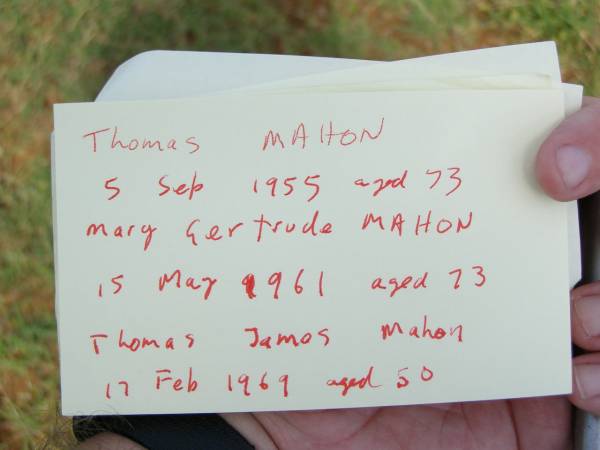 Thomas MAHON
5 Sep 1955 aged 73
Mary Gertrude MAHON
15 May 1961 aged 73
Thomas James Mahon
17 Feb 1969 aged 50